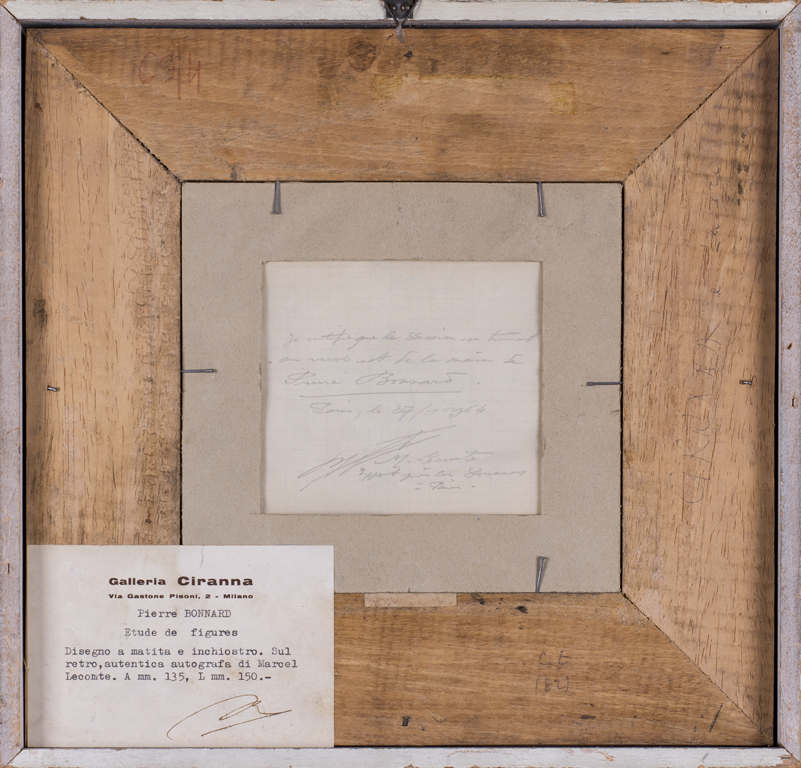 Je certifie que le dessin au
au verso est de la main de
Pierre Bonnard.
Paris, le 1964
M. Lecomte
Expert près les Douanes
à Paris.
Galleria Ciranna
Via Gastone Pisoni, 2 - Milano
Pierre BONNARD
Etude de figures
Disegno a matita e inchiostro. Sul
retro,autentica autografa di Marcel
Lecomte. A mm. 135, L mm. 150.-